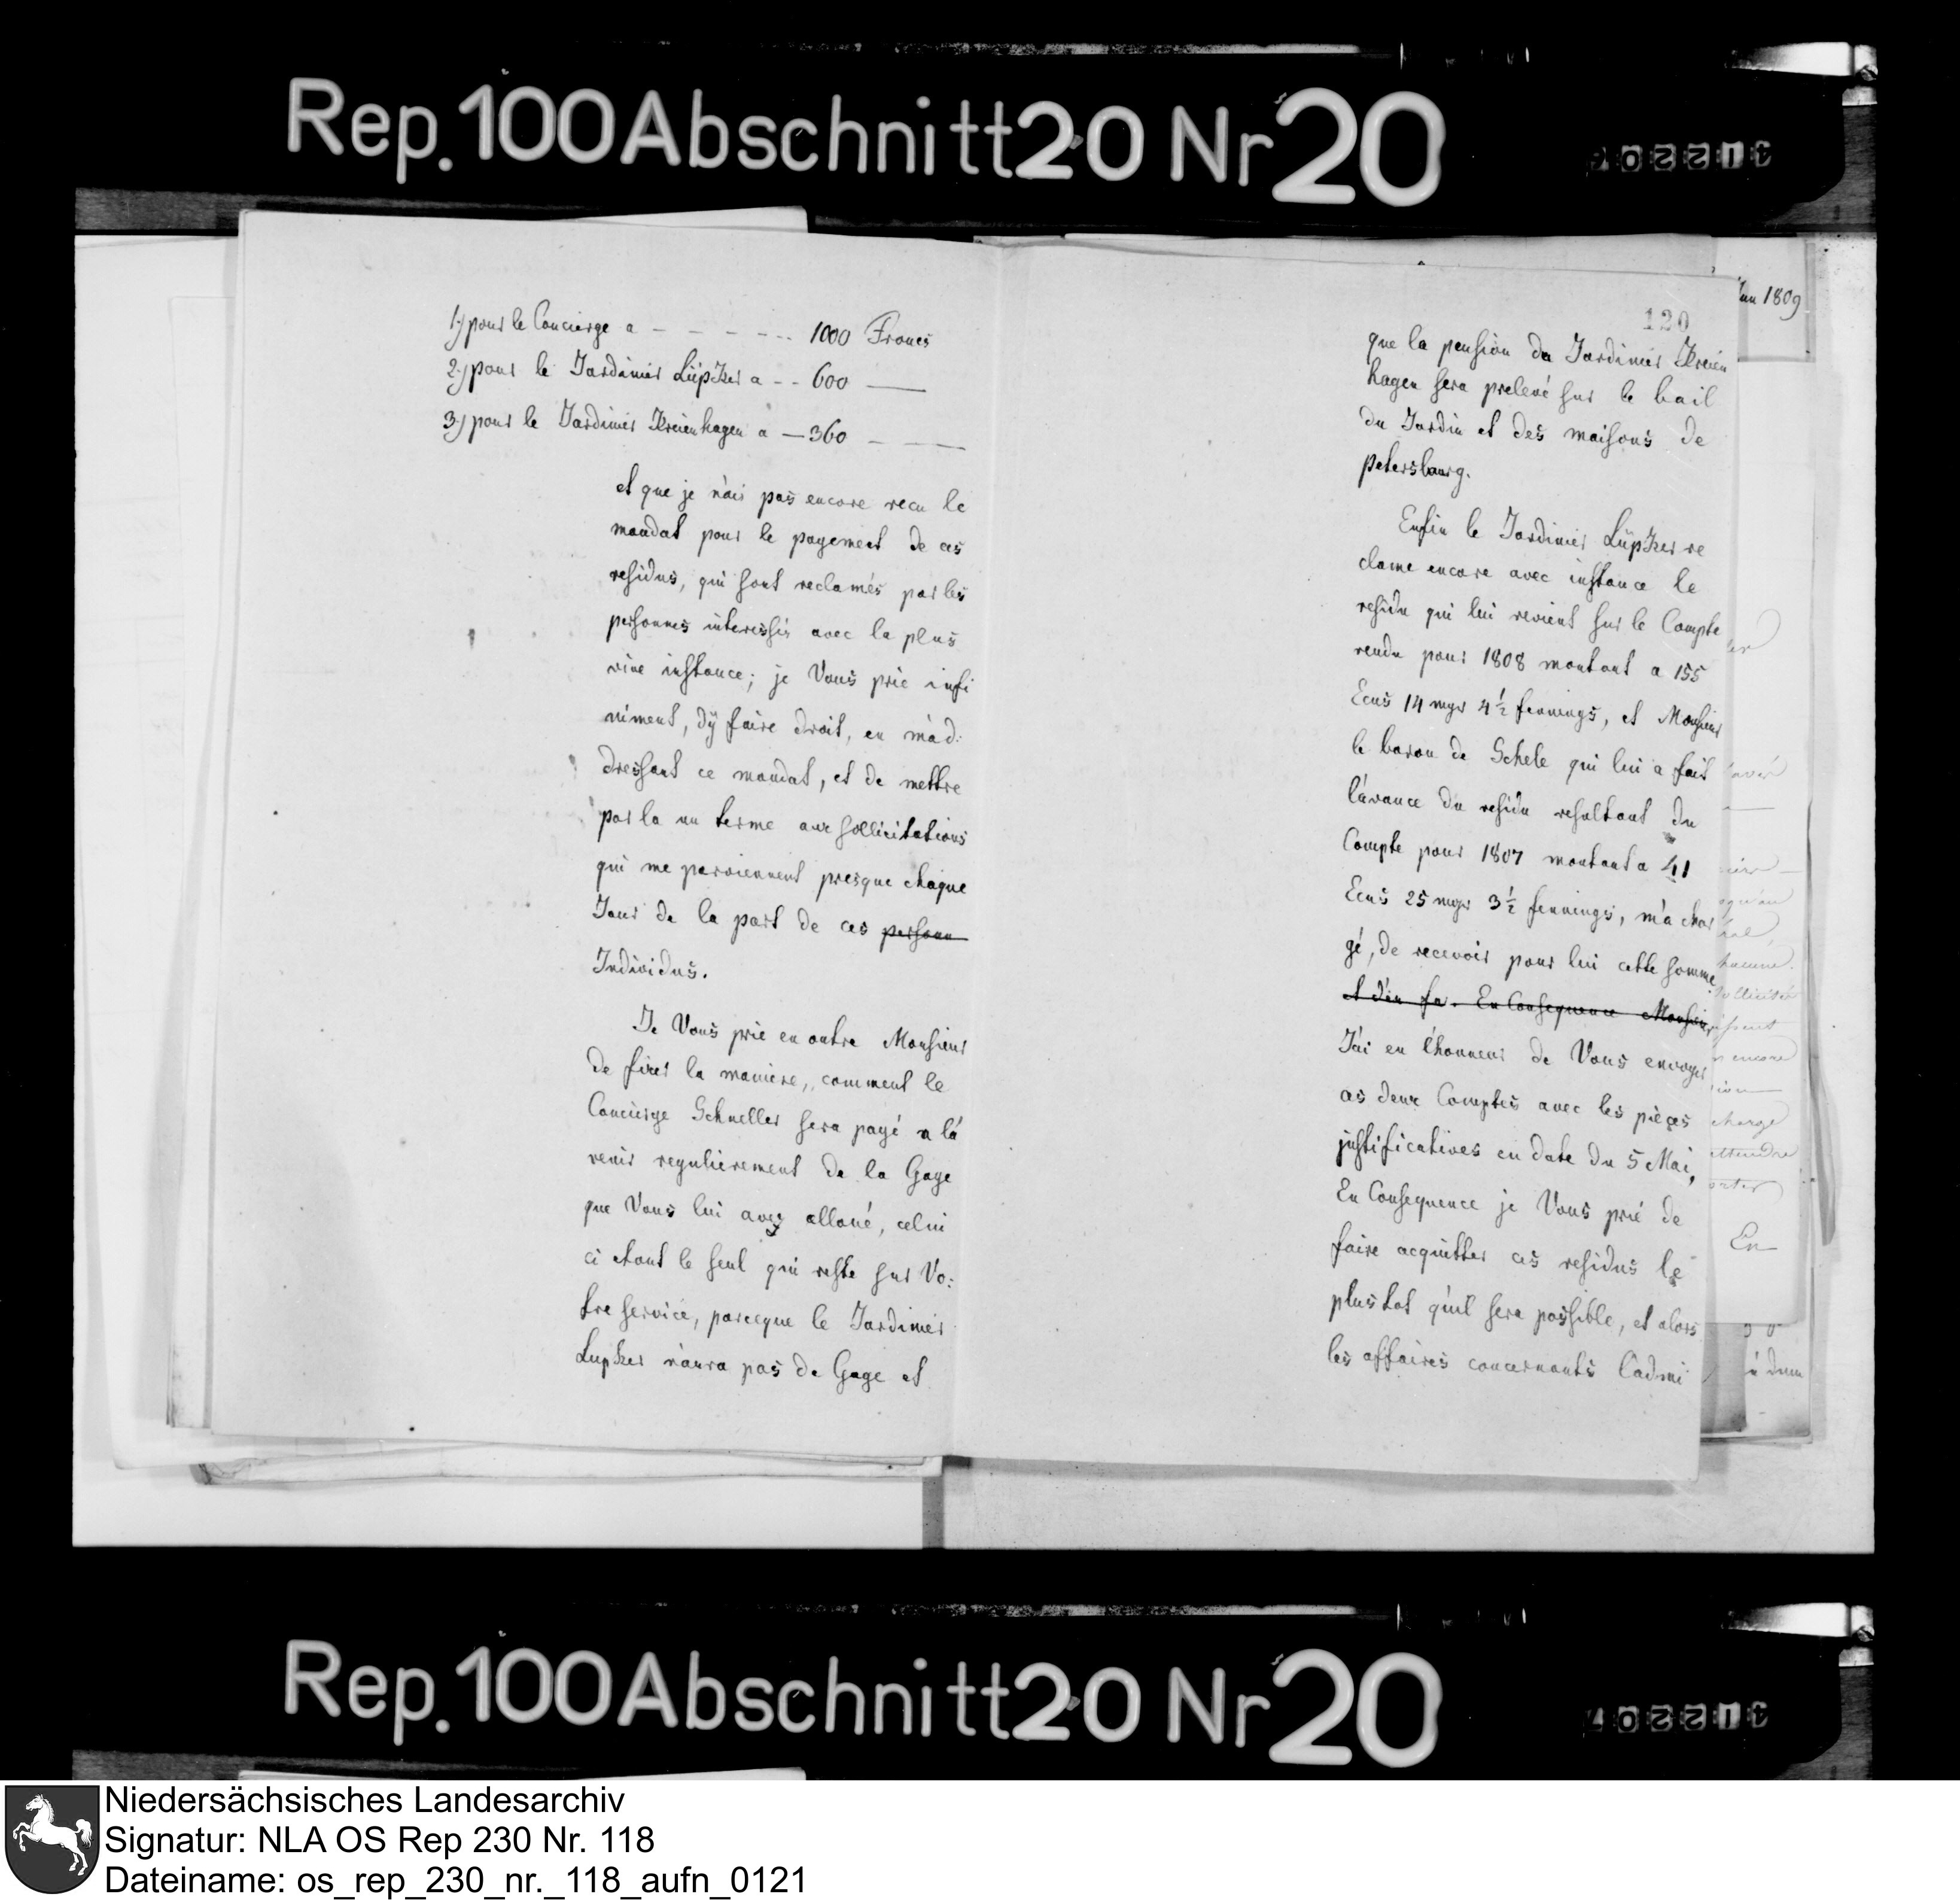 Rep. 100 Abschnitt 20 Nr 20
1.) pour le Concierge a - - - - - - 1000 Francs
2.) pour le Jardinier Lüpker a - - 600 —
3.) pour le Jardinier Kreienhagen a — 360 - —
et que je n'ais pas encore recu le
mandat pour le payement de ces
residus, qui sont reclamés par les
personnes interessés avec la plus
vive instance; je Vous prie infi
niment, d'ÿ faire droit, en m'ad:
dressant ce mandat, et de mettre
par la un terme aux sollicitations
qui me parviennent presque chaque
Jour de la part de ces person
Individus.
Je Vous prie en outre Monsieur
de fixer la maniere, comment le
Concierge Schneller sera payé a l'a
venir regulierement de la Gage
que Vous lui avez alloué, celui
ci etant le seul qui reste sur Vo:
tre service, parceque le Jardinier
Lupker n'aura pas de Gage et
120
que la pension du Jardinier Kreien
hagen sera prelevé sur le bail
du Jardin et des maisons de
petersbourg.
Enfin le Jardinier Lüpker re
clame encore avec instance le
residu qui lui revient sur le Compte
rendu pour 1808 montant a 155
Ecus 14 mgr 4½ fennings, et Monsieur
le baron de Schele qui lui a fait
l'avance du residu resultant du
Compte pour 1807 montant a 41
Ecus 25 mgr 3½ fennings, m'a char
gé, de recevoir pour lui cette somme
et d'en fa. En Consequence Monsieur
J'ai eu l'honneur de Vous envoyer
as deux Comptes avec les pièçes
justificatives en date du 5 Mai,
En Consequence je Vous prié de
faire acquitter ces residus le
plustot qu'il sera possible, et alors
les affaires concernants l'admi
1809
encore
charge
attendre
En
Rep. 100 Abschnitt 20 Nr 20
Niedersächsisches Landesarchiv
Signatur: NLA OS Rep 230 Nr. 118
Dateiname: os_rep_230_nr._118_aufn_0121